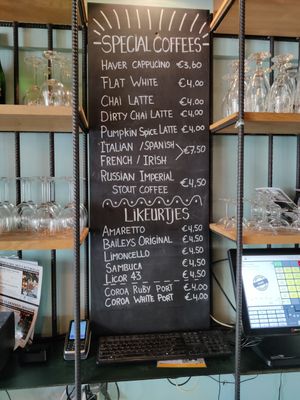 SPECIAL COFFEES
HAVER CAPPUCINO €3,60
FLAT WHITE €4,00
CHAI LATTE €4,00
DIRTY CHAI LATTE €4,00
PUMPKIN SPICE LATTE €4,00
ITALIAN / SPANISH
FRENCH / IRISH €7,50
RUSSIAN IMPERIAL
STOUT COFFEE €4,50
LIKEURTJES
AMARETTO €4,50
BAILEYS ORIGINAL €4,50
LIMONCELLO €4,50
SAMBUCA €4,50
LICOR 43 €4,50
COROA RUBY PORT €4,00
COROA WHITE PORT €4,00